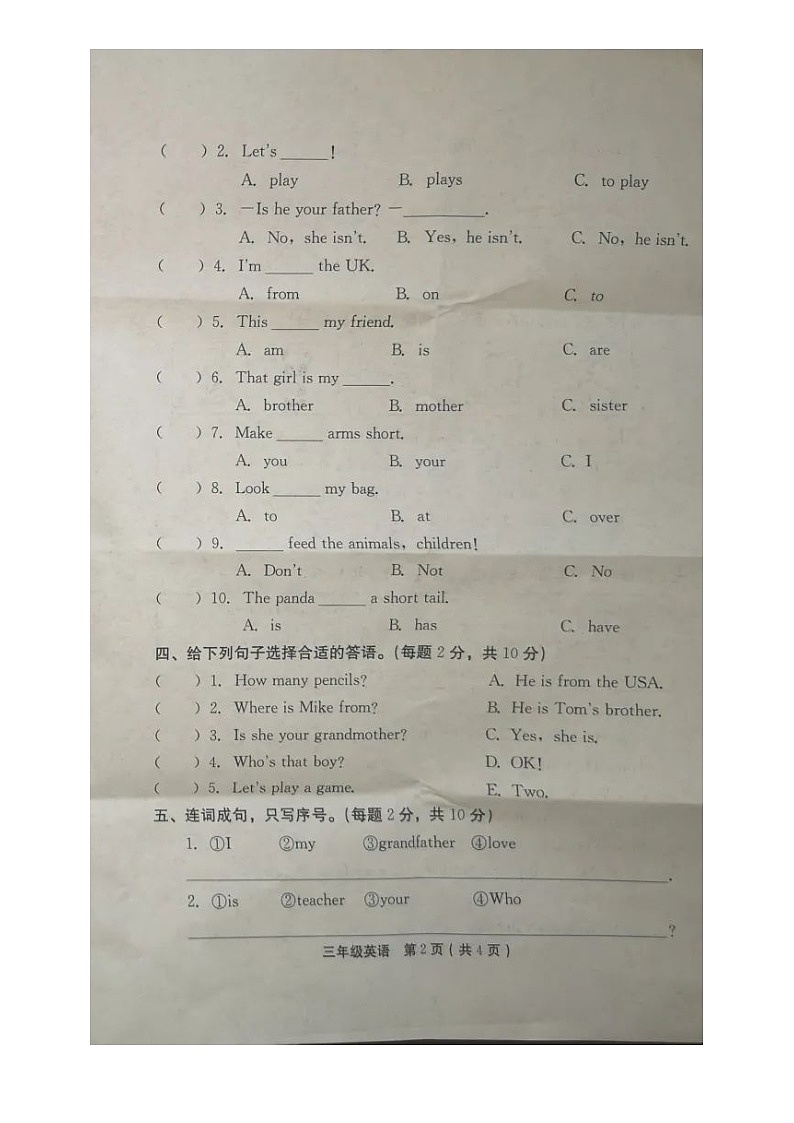 (    )2. Let's ______!
A. play    B. plays    C. to play
(    )3. —Is he your father? —__________.
A. No, she isn't.    B. Yes, he isn't.    C. No, he isn't.
(    )4. I'm ______ the UK.
A. from    B. on    C. to
(    )5. This ______ my friend.
A. am    B. is    C. are
(    )6. That girl is my ______.
A. brother    B. mother    C. sister
(    )7. Make ______ arms short.
A. you    B. your    C. I
(    )8. Look ______ my bag.
A. to    B. at    C. over
(    )9. ______ feed the animals, children!
A. Don't    B. Not    C. No
(    )10. The panda ______ a short tail.
A. is    B. has    C. have
四、给下列句子选择合适的答语。(每题2分，共10分)
(    )1. How many pencils?    A. He is from the USA.
(    )2. Where is Mike from?    B. He is Tom's brother.
(    )3. Is she your grandmother?    C. Yes, she is.
(    )4. Who's that boy?    D. OK!
(    )5. Let's play a game.    E. Two.
五、连词成句，只写序号。(每题2分，共10分)
1. ①I    ②my    ③grandfather    ④love
______________________________.
2. ①is    ②teacher    ③your    ④Who
______________________________?
三年级英语  第2页(共4页)